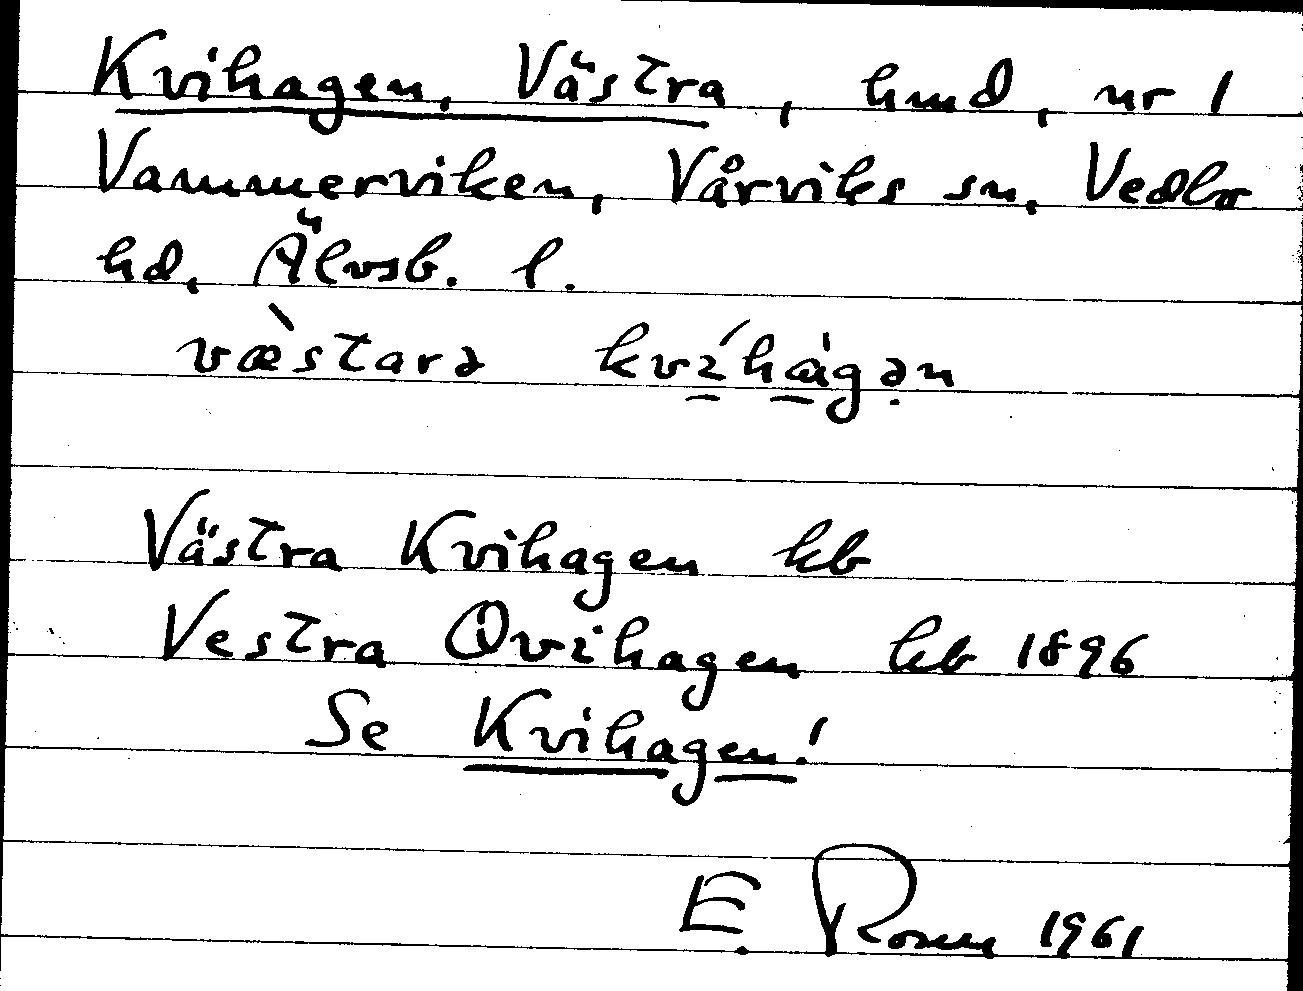 Kvihagen, Västra, hmd, nr 1
Vammerviken, Vårviks sn, Vedbo
hd, Älvsb. l.
væ̀stara kvíhàgən
Västra Kvihagen kb
Vestra Qvihagen kb 1896
Se Kvihagen!
E. 1961